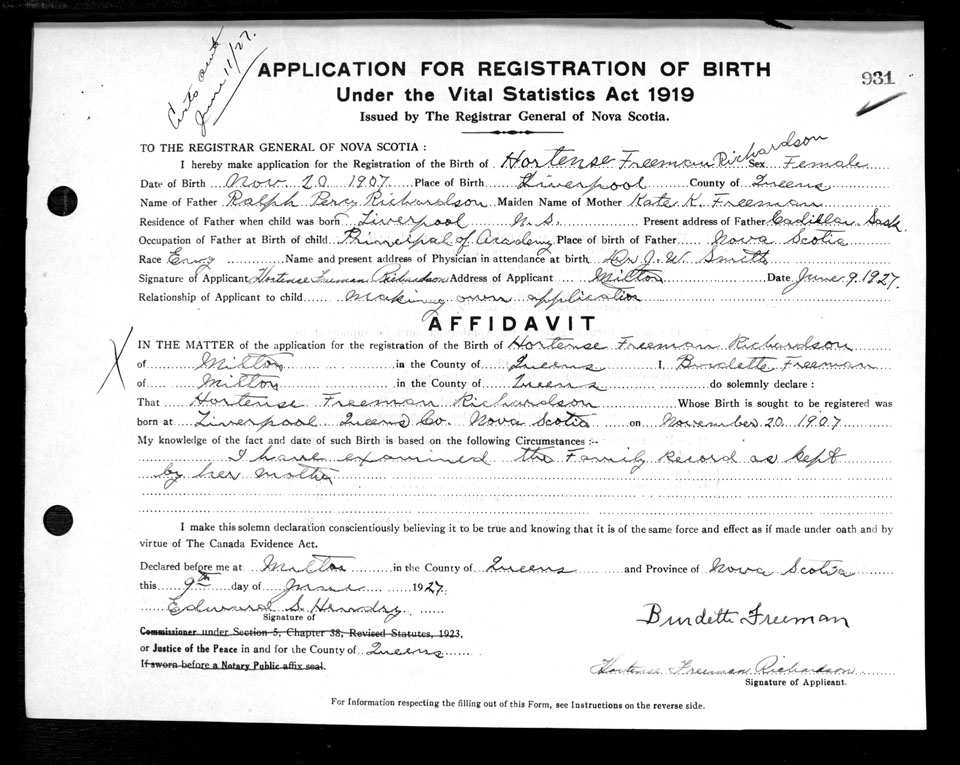 Certs sent
June 11/27.
APPLICATION FOR REGISTRATION OF BIRTH
931
Under the Vital Statistics Act 1919
Issued by The Registrar General of Nova Scotia.
TO THE REGISTRAR GENERAL OF NOVA SCOTIA :
I hereby make application for the Registration of the Birth of Hortense Freeman Richardson Sex Female
Date of Birth Nov. 20 1907 Place of Birth Liverpool County of Queens
Name of Father Ralph Percy Richardson Maiden Name of Mother Kate K. Freeman
Residence of Father when child was born Liverpool N.S. Present address of Father Cadillac Sask
Occupation of Father at Birth of child Principal of Academy Place of birth of Father Nova Scotia
Race Eng Name and present address of Physician in attendance at birth Dr J. W. Smith
Signature of Applicant Hortense Freeman Richardson Address of Applicant Milton Date June 9, 1927.
Relationship of Applicant to child making own application
AFFIDAVIT
X IN THE MATTER of the application for the registration of the Birth of Hortense Freeman Richardson
of Milton in the County of Queens I, Burdette Freeman
of Milton in the County of Queens do solemnly declare :
That Hortense Freeman Richardson Whose Birth is sought to be registered was
born at Liverpool Queens Co. Nova Scotia on November 20 1907
My knowledge of the fact and date of such Birth is based on the following Circumstances :-
I have examined the Family Record as kept
by her mother
I make this solemn declaration conscientiously believing it to be true and knowing that it is of the same force and effect as if made under oath and by
virtue of The Canada Evidence Act.
Declared before me at Milton in the County of Queens and Province of Nova Scotia
this 9th day of June 1927.
Edward S. Hendry
Signature of
Burdette Freeman
Commissioner under Section 5, Chapter 38, Revised Statutes, 1923,
or Justice of the Peace in and for the County of Queens
If sworn before a Notary Public affix seal.
Hortense Freeman Richardson
Signature of Applicant.
For Information respecting the filling out of this Form, see Instructions on the reverse side.